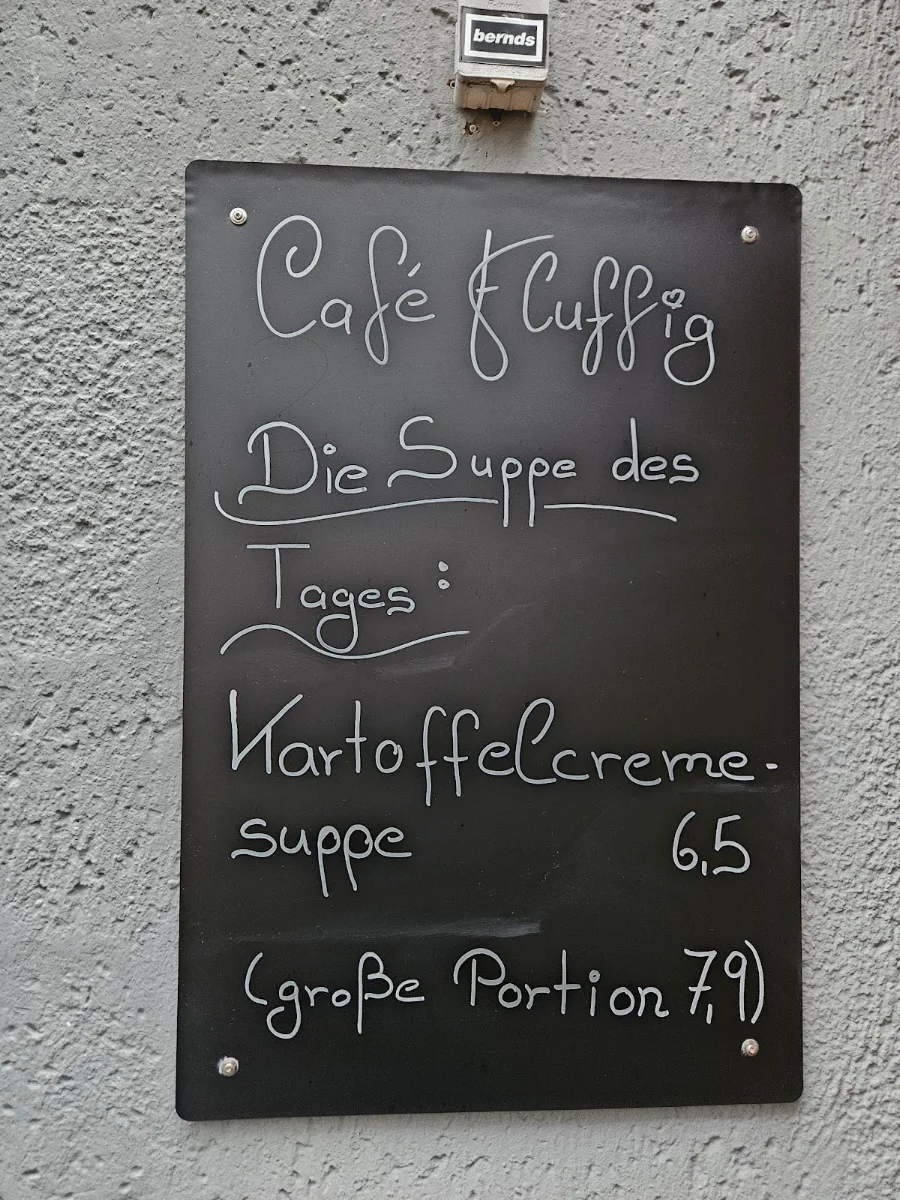 bernds
Café Fluffig
Die Suppe des
Tages:
Kartoffelcreme-
suppe 6,5
(große Portion 7,9)